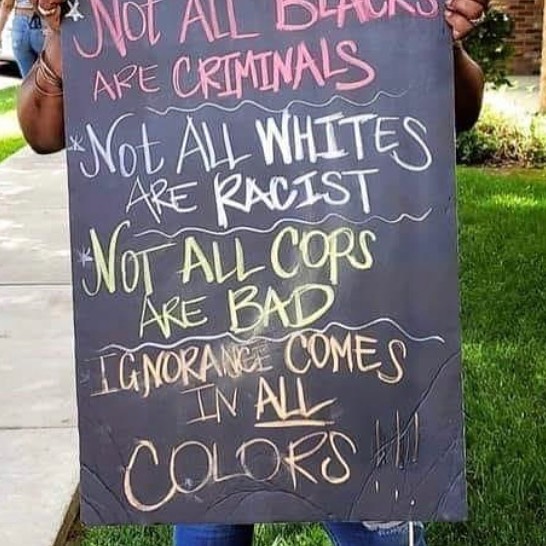 *NOT ALL BLACKS
ARE CRIMINALS
*NOt ALL WHITES
ARE RACIST
*NOT ALL COPS
ARE BAD
IGNORANCE COMES
IN ALL
COLORS !!!